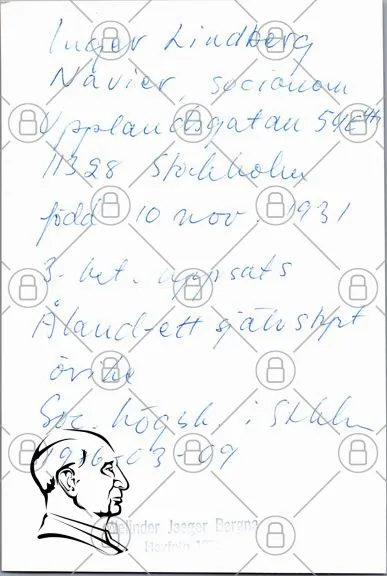 Inger Lindberg
Navier, socionom
Upplandsgatan
11328 Stockholm
född 10 nov. 1931
3-bet. uppsats
Åland-ett självstyrt
örike
Soc. högsk. i Sthlm
1976-03-09
Jaeger